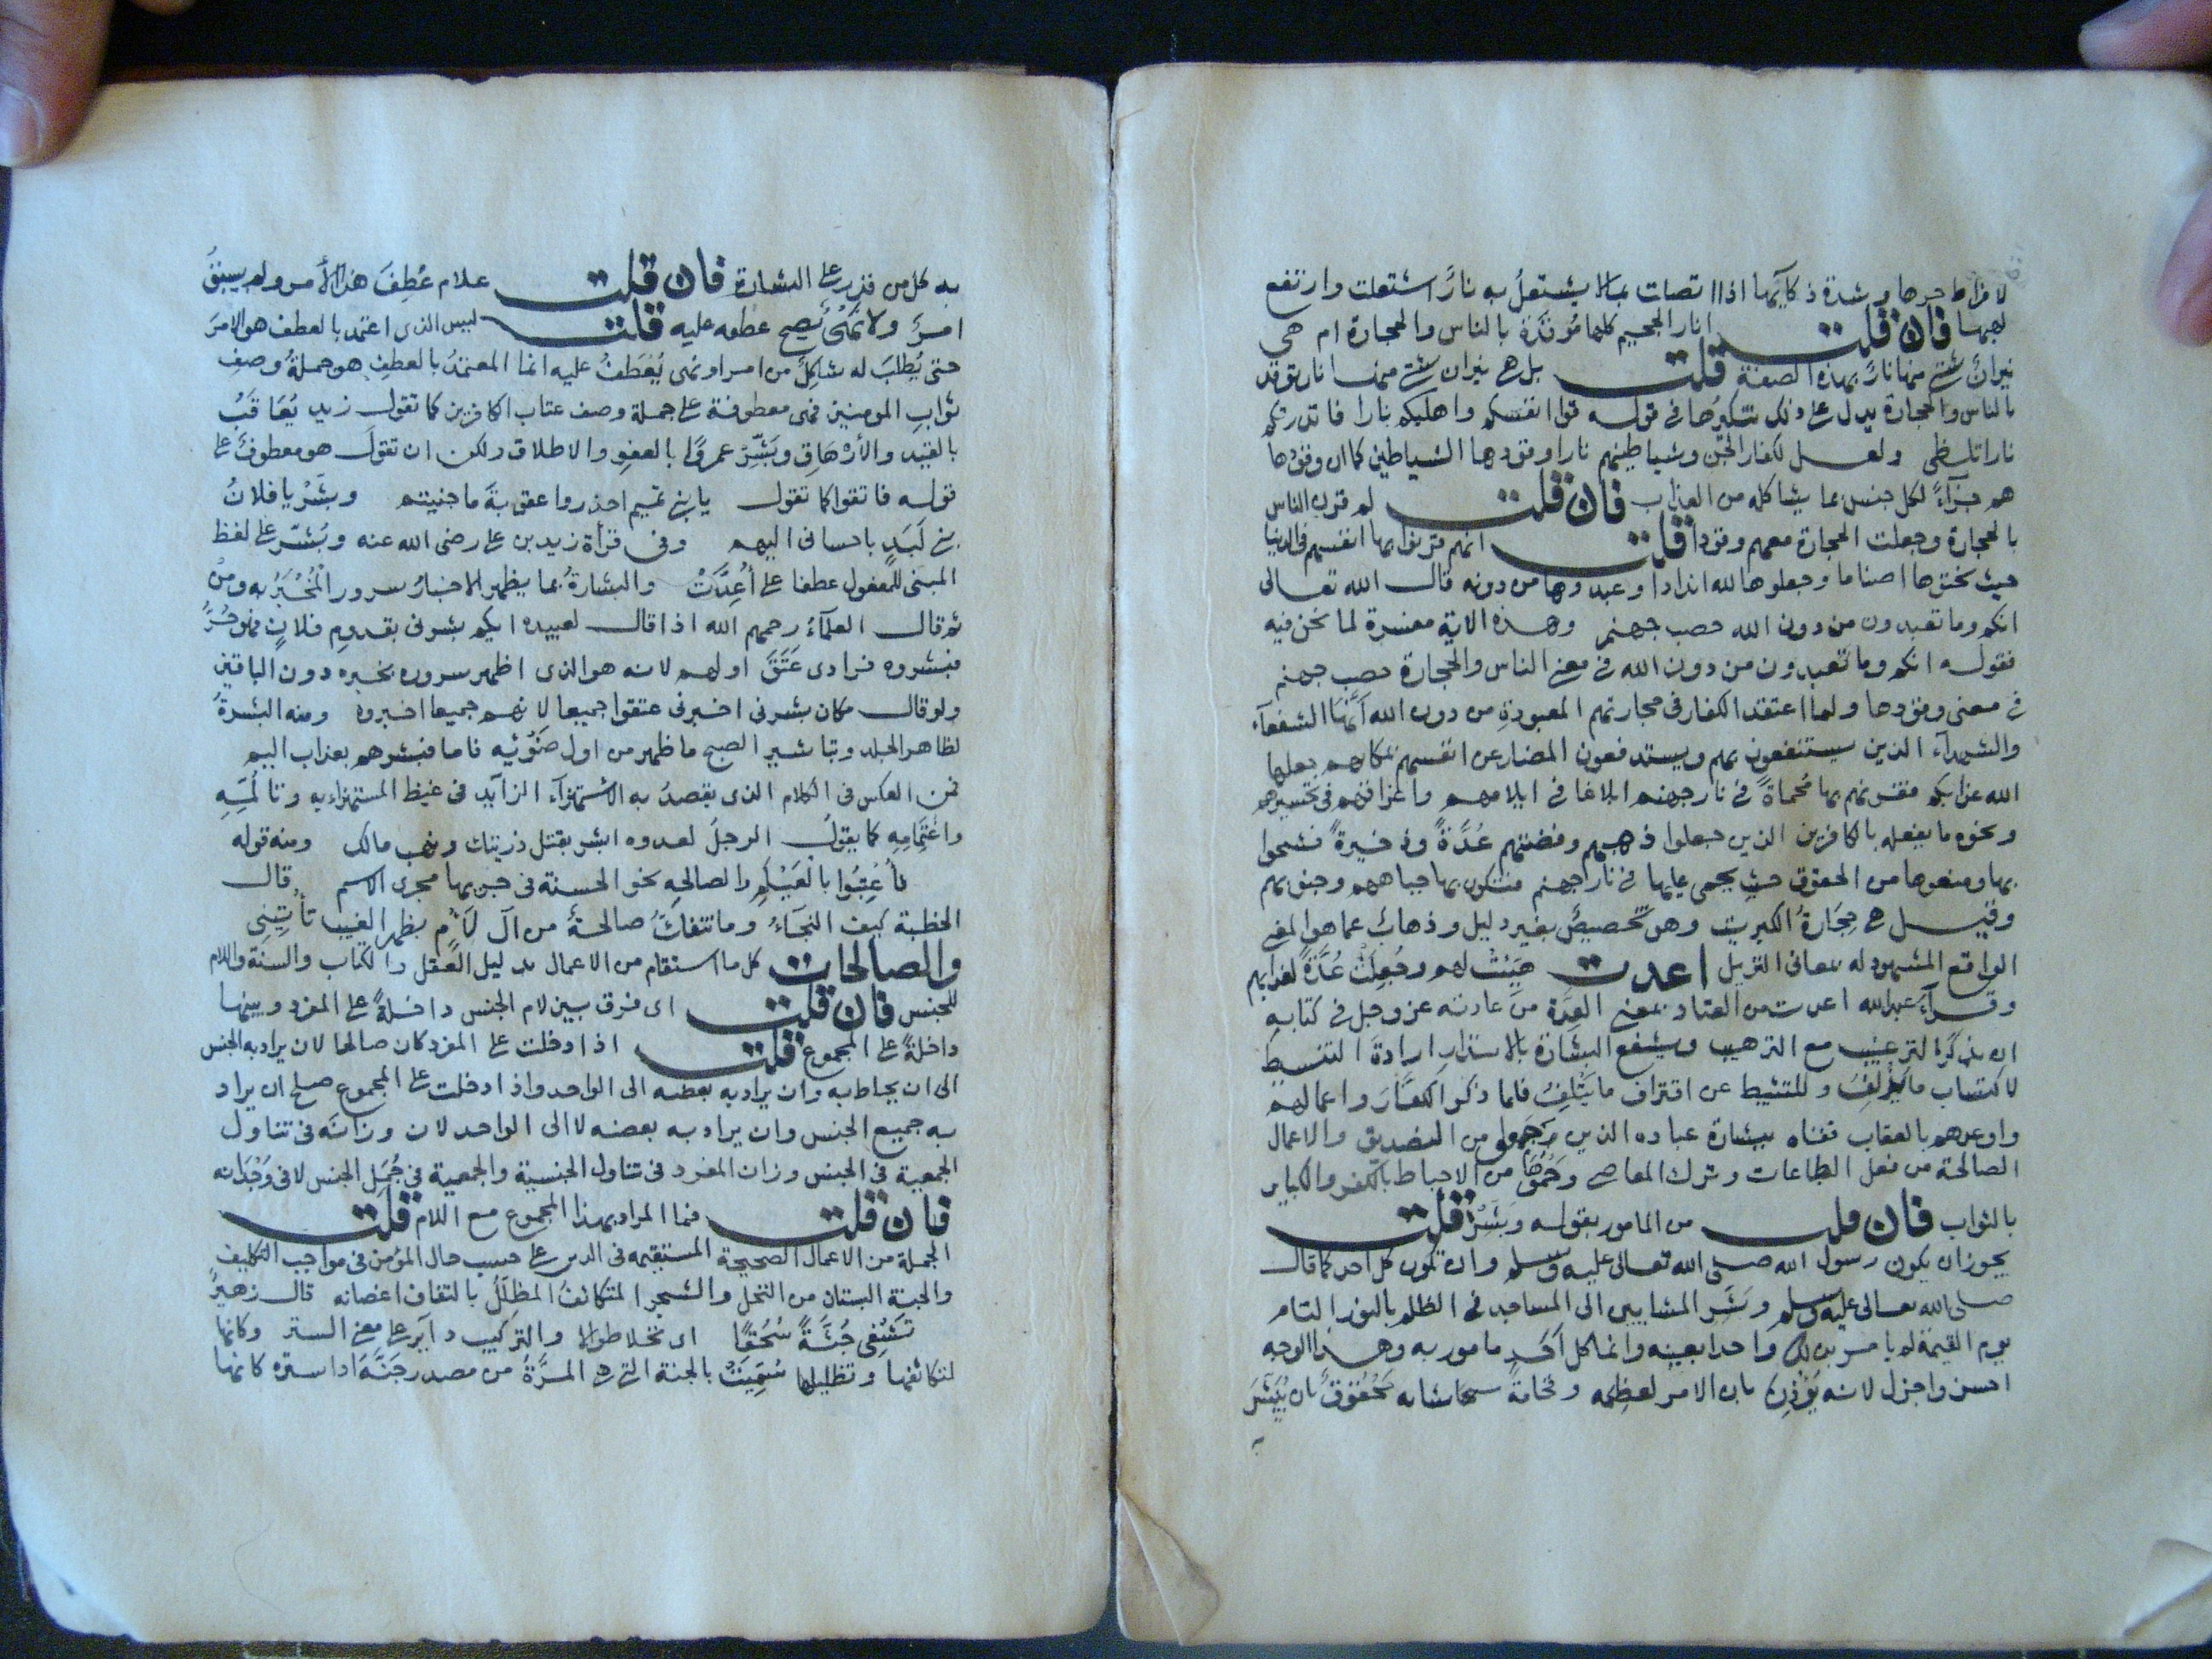 لافراط حرها وشدة ذكائها اذا اتصلت بما لا يشتعل به نار اشتعلت وارتفع
لهبها فان قلت انار الجحيم كلها موقدة بالناس والحجارة ام هي
نيران شتى منها نار بهذه الصفة قلت بل هي نيران شتى منها نار توقد
بالناس والحجارة يدل على ذلك تنكيرها في قوله قوا انفسكم واهليكم نارا فانذرتكم
نارا تلظى ولعل لكفار الجن وشياطينهم نارا وقودها الشياطين كما ان وقودها
هم جزآءً لكل جنس بما يشاكله من العذاب فان قلت لم قرن الناس
بالحجارة وجعلت الحجارة معهم وقودا قلت انهم قرنوا بها انفسهم في الدنيا
حيث نحتوها اصناما وجعلوها لله اندادا وعبدوها من دونه قال الله تعالى
انكم وما تعبدون من دون الله حصب جهنم وهذه الاية مفسرة لما نحن فيه
فقوله انكم وما تعبدون من دون الله في معنى الناس والحجارة حصب جهنم
في معنى وقودها ولما اعتقد الكفار في حجارتهم المعبودة من دون الله انها الشفعآء
والشهدآء الذين يستنفعون بهم ويستدفعون المضار عن انفسهم بمكانهم جعلها
الله عذابكم فقرنهم بها محماةً في نار جهنم ابلاغا في ايلامهم واغراقهم في تحسيرهم
ونحوه ما يفعله بالكافرين الذين جعلوا ذهبهم وفضتهم عُدَّةً وذخيرةً فشحوا
بها ومنعوها من الحقوق حيث يحمى عليها في نار جهنم فتكوى بها جباههم وجنوبهم
وقيل هي حِجَارةُ الكبريت وهو تخصيصٌ بغير دليل وذهابٌ عما هو المعنى
الواقع المشهود له بمعاني التنزيل اعدت هيئت لهم وجُعِلَتْ عُدَّةً لعذابهم
وقرآءَ عبد الله اعتدت من العتاد بمعنى العِدَّة من عادته عز وجل في كتابه
ان يذكر الترغيب مع الترهيب ويشفع البشارة بالانذار ارادةَ التنشيط
لاكتساب ما يُزلِفُ وللتثبيط عن اقتراف ما يُتْلِفُ فلما ذكر الكفَّارَ واعمالهم
واوعدهم بالعقاب قفاه ببشارة عباده الذين جمعوا من التصديق والاعمال
الصالحة من فعل الطاعات وترك المعاصي وحموها من الاحباط بالكفر والكباير
بالثواب فان قلت من المامور بقوله وَبَشِّرْ قلت
يجوز ان يكون رسول الله صلى الله تعالى عليه وسلم وان يكون كل احد كما قال
صلى الله تعالى عليه وسلم وبشر المشايين الى المساجد في الظلم بالنور التام
يوم القيمة لم يامر بذلك واحدا بعينه وانما كل احدٍ مامور به وهذا الوجه
احسن واجزل لانه يُؤْذِنُ بان الامر لعظمه وفخامة شانه محقوقٌ بان يُبَشِّرَ
به
به كل من قدر على البشارة فان قلت علام عُطِفَ هذا الأمر ولم يسبق
امرٌ ولا نَهْيٌ يَصِح عطفه عليه قلت ليس الذي اعتمد بالعطف هو الامرَ
حتى يُطلبَ له شاكِلٌ من امر او نهى يُعْطَفُ عليه انما المعتمدُ بالعطفِ هو جملةُ وصف
ثوابِ المومنين فهى معطوفة على جملة وصف عتاب الكافرين كما تقول زيد يُعَاقَبُ
بالقيد والأرْهَاقِ وبَشِّرْ عمروًا بالعفوِ والاطلاق ولكن ان تقولَ هو معطوفٌ على
قوله فاتقوا كما تقول يا بني تميم احذروا عقوبةَ ما جنيتم وبشِّرْ يا فلانُ
بني اَسَدٍ باحسانى اليهم وفي قرأة زيد بن على رضى الله عنه وبُشِّر على لفظ
المبنى للمفعول عطفا على أُعِدَّتْ والبشارةُ بما يظهر الاخبارُ سرور المُخْبَرِ به ومِنْ
ثم قال العلمآءُ رحمهم الله اذا قال لعبيده ايكم بشرنى بقدومِ فلانٍ فهو حُرٌّ
فبشروه فرادى عَتَقَ اولهم لانه هو الذى اظهر سروره بخبره دون الباقين
ولو قال مكان بشرنى اخبرنى عتقوا جميعا لانهم جميعا اخبروه ومنه البشرةُ
لظاهر الجلد وتباشير الصبح ما ظهر من اول ضَوْئِه فاما فبشرهم بعذاب اليم
فمن العكس في الكلام الذى يقصدُ به الاستهزآء الزآيد في غيظ المستهزاء به وتألمِهِ
واغْتِمَامِهِ كما يقول الرجلَ لعدوه ابشر بقتل ذريتك ونهب مالك ومنه قوله
فأُعْتِبُوا بالصَّيْلَمِ والصالحةِ نحو الحسنة في جريها مجرى الاسم قال
الحطيئة كيف الهجآءُ وما تنفكُّ صالحةٌ من آل لَأْمٍ بظهر الغيب تأْتِيني
والصالحات كل ما استقام من الاعمال بدليل العقل والكتاب والسنة واللام
للجنس فان قلت اى فرق بين لام الجنس داخلةً على المفرد وبينها
داخلةً على المجموع قلت اذا دخلت على المفرد كان صالحا لان يراد به الجنس
الى ان يحاط به وان يراد به بعضه الى الواحد واذا دخلت على المجموع صلح ان يراد
به جميع الجنس وان يراد به بعضه لا الى الواحد لان وزانَه في تناول
الجمعية في الجنس وزان المفرد في تناول الجنسية والجمعية في جُمَلِ الجنس لا في وُحْدَانه
فان قلت فما المراد بهذا المجموع مع اللام قلت
الجملة من الاعمال الصحيحة المستقيمه في الدين على حسب حال المؤمن في مواجب التكليف
والجنة البستان من النخل والشجر المتكاثفُ المظِلّلُ بالتفاف اغصانه قال زهيرٌ
تَسْقِى جَنَّةً سُحُقًا اى نخلا طوالا والتركيب دآير على معنى الستر وكانها
لتكاثفها وتظليلها سُمِّيَتْ بالجنة التي هى المَرَّةُ من مصدر جَنَّهُ اذا ستره كانها